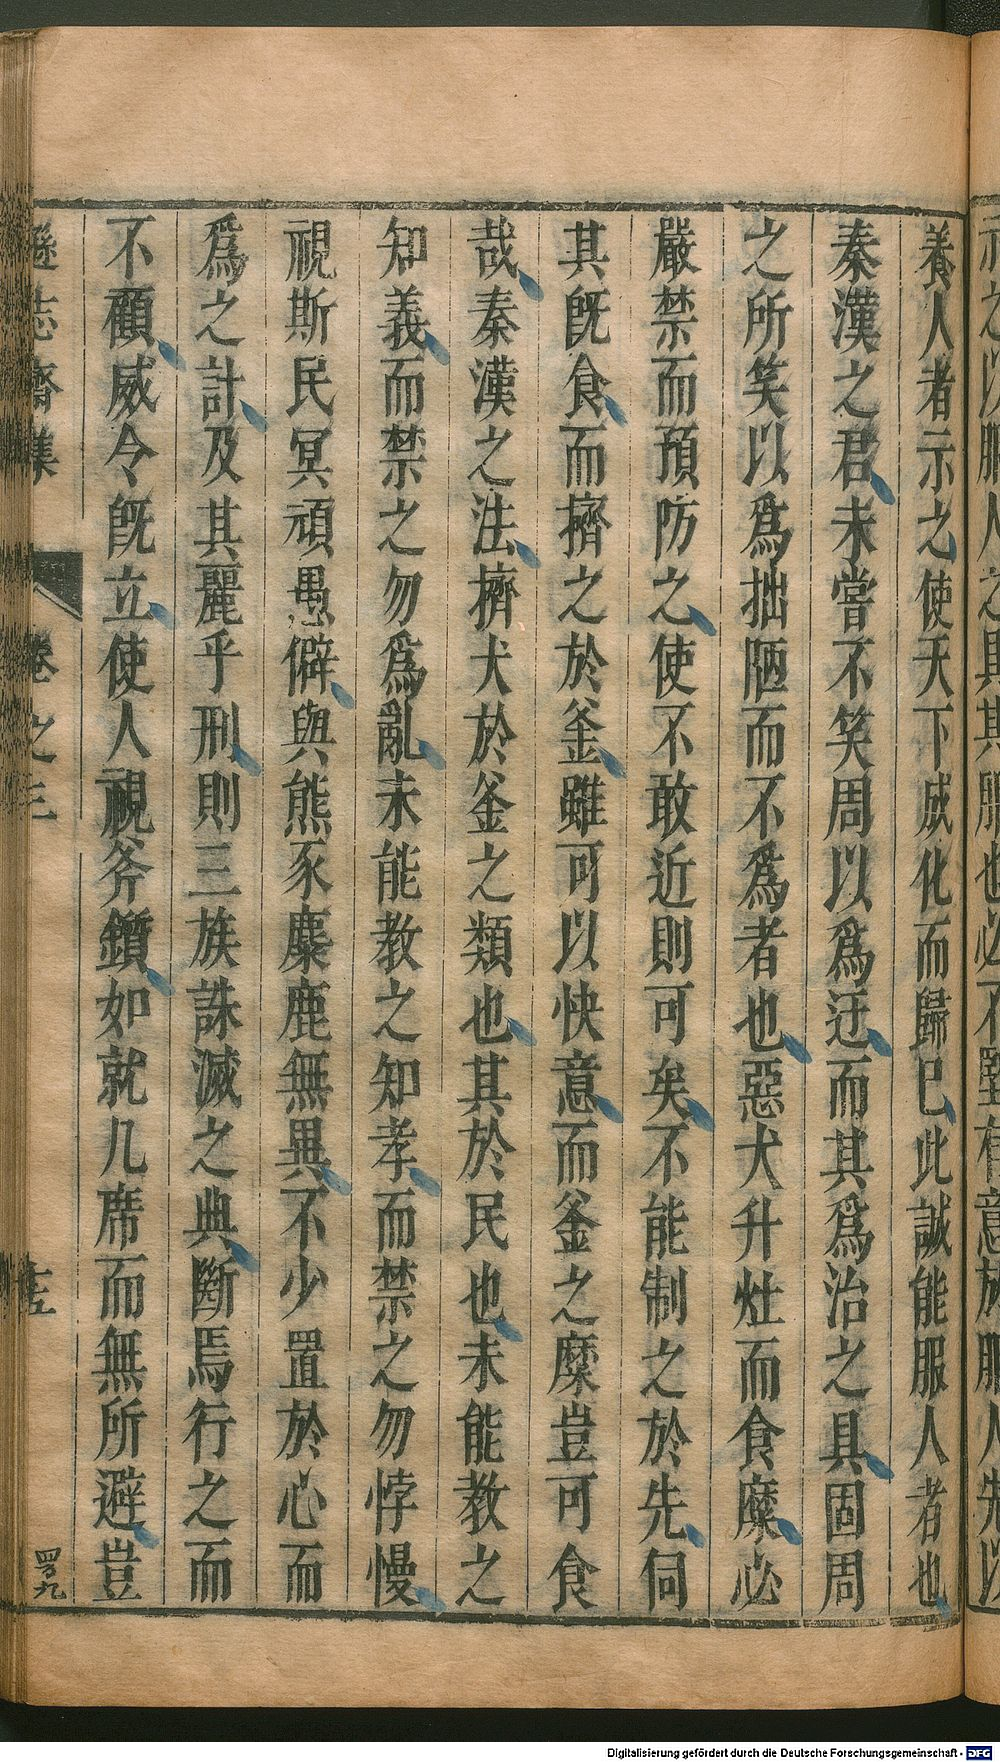 養人者示之使天下咸化而歸巳此誠能服人者也
秦漢之君未嘗不笑周以爲迂而其爲治之具固周
之所笑以爲拙陋而不爲者也惡犬升灶而食糜必
嚴禁而預防之使不敢近則可矣不能制之於先伺
其旣食而擠之於釜雖可以快意而釜之糜豈可食
哉秦漢之法擠犬於釜之類也其於民也未能教之
知義而禁之勿爲亂未能教之知孝而禁之勿悖慢
視斯民冥頑愚僻與熊豕麋鹿無異不少置於心而
爲之計及其麗乎刑則三族誅滅之典斷焉行之而
不顧威令旣立使人視斧鑕如就几席而無所避豈
遜志齋集 卷之三 十五
Digitalisierung gefördert durch die Deutsche Forschungsgemeinschaft - DFG